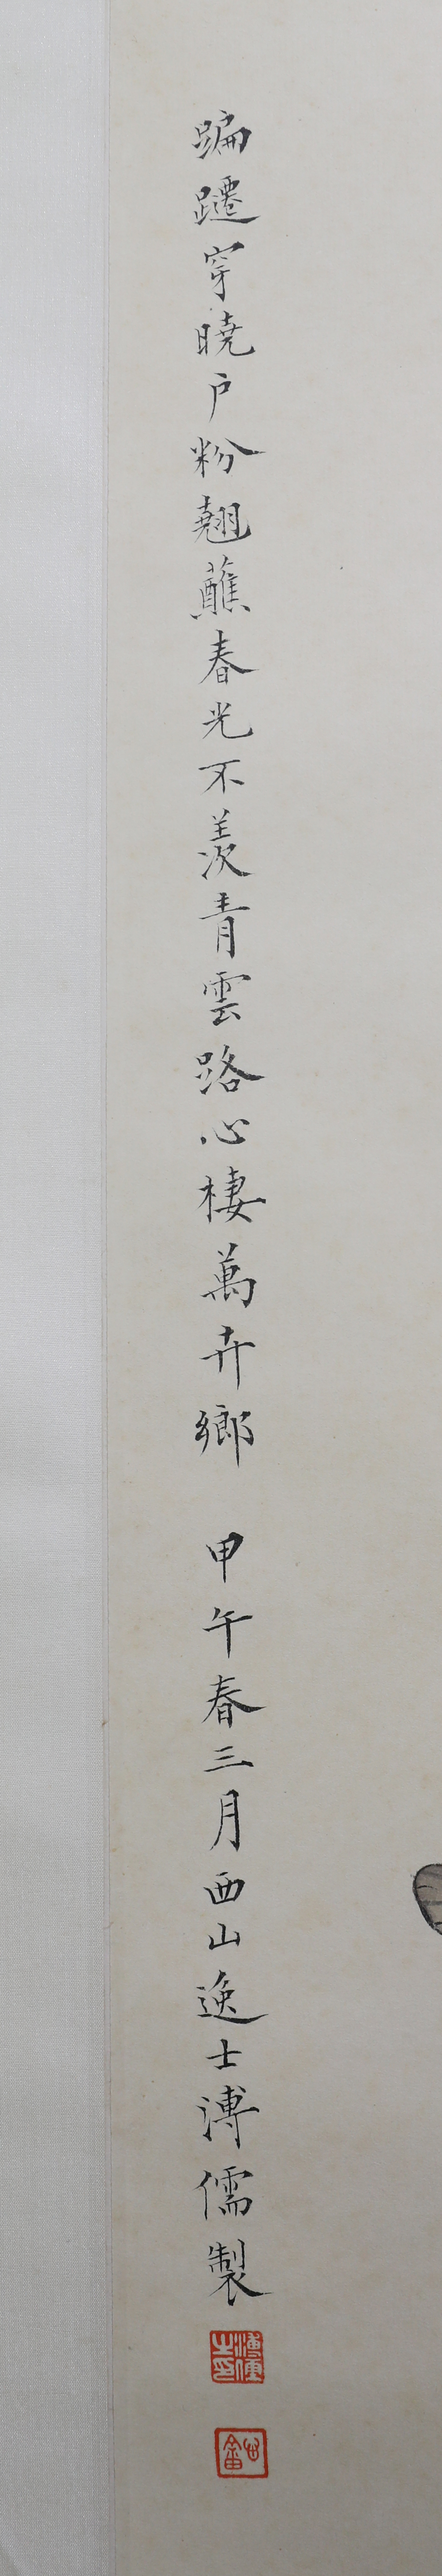 蹁躚穿曉户粉翹蘸春光不羨青雲路心棲萬卉鄉 甲午春三月西山逸士溥儒製
溥儒之印